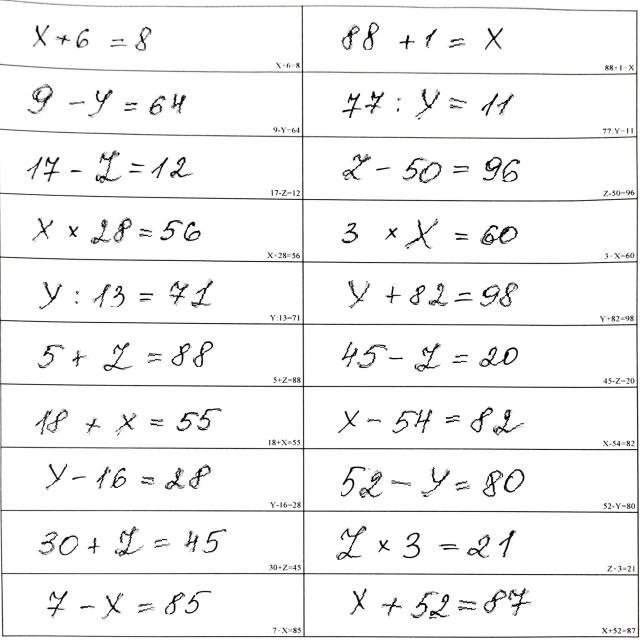 X+6 =8
X+6=8
88 +1 = X
88+1=X
9 -Y = 64
9-Y=64
77 : Y = 11
77:Y=11
17 - Z = 12
17-Z=12
Z - 50 = 96
Z-50=96
X × 28 = 56
X×28=56
3 × X = 60
3×X=60
Y : 13 = 71
Y:13=71
Y + 82 = 98
Y+82=98
5 + Z = 88
5+Z=88
45 - Z = 20
45-Z=20
18 + X = 55
18+X=55
X - 54 = 82
X-54=82
Y - 16 = 28
Y-16=28
52 - Y = 80
52-Y=80
30 + Z = 45
30+Z=45
Z × 3 = 21
Z×3=21
7 - X = 85
7-X=85
X + 52 = 87
X+52=87